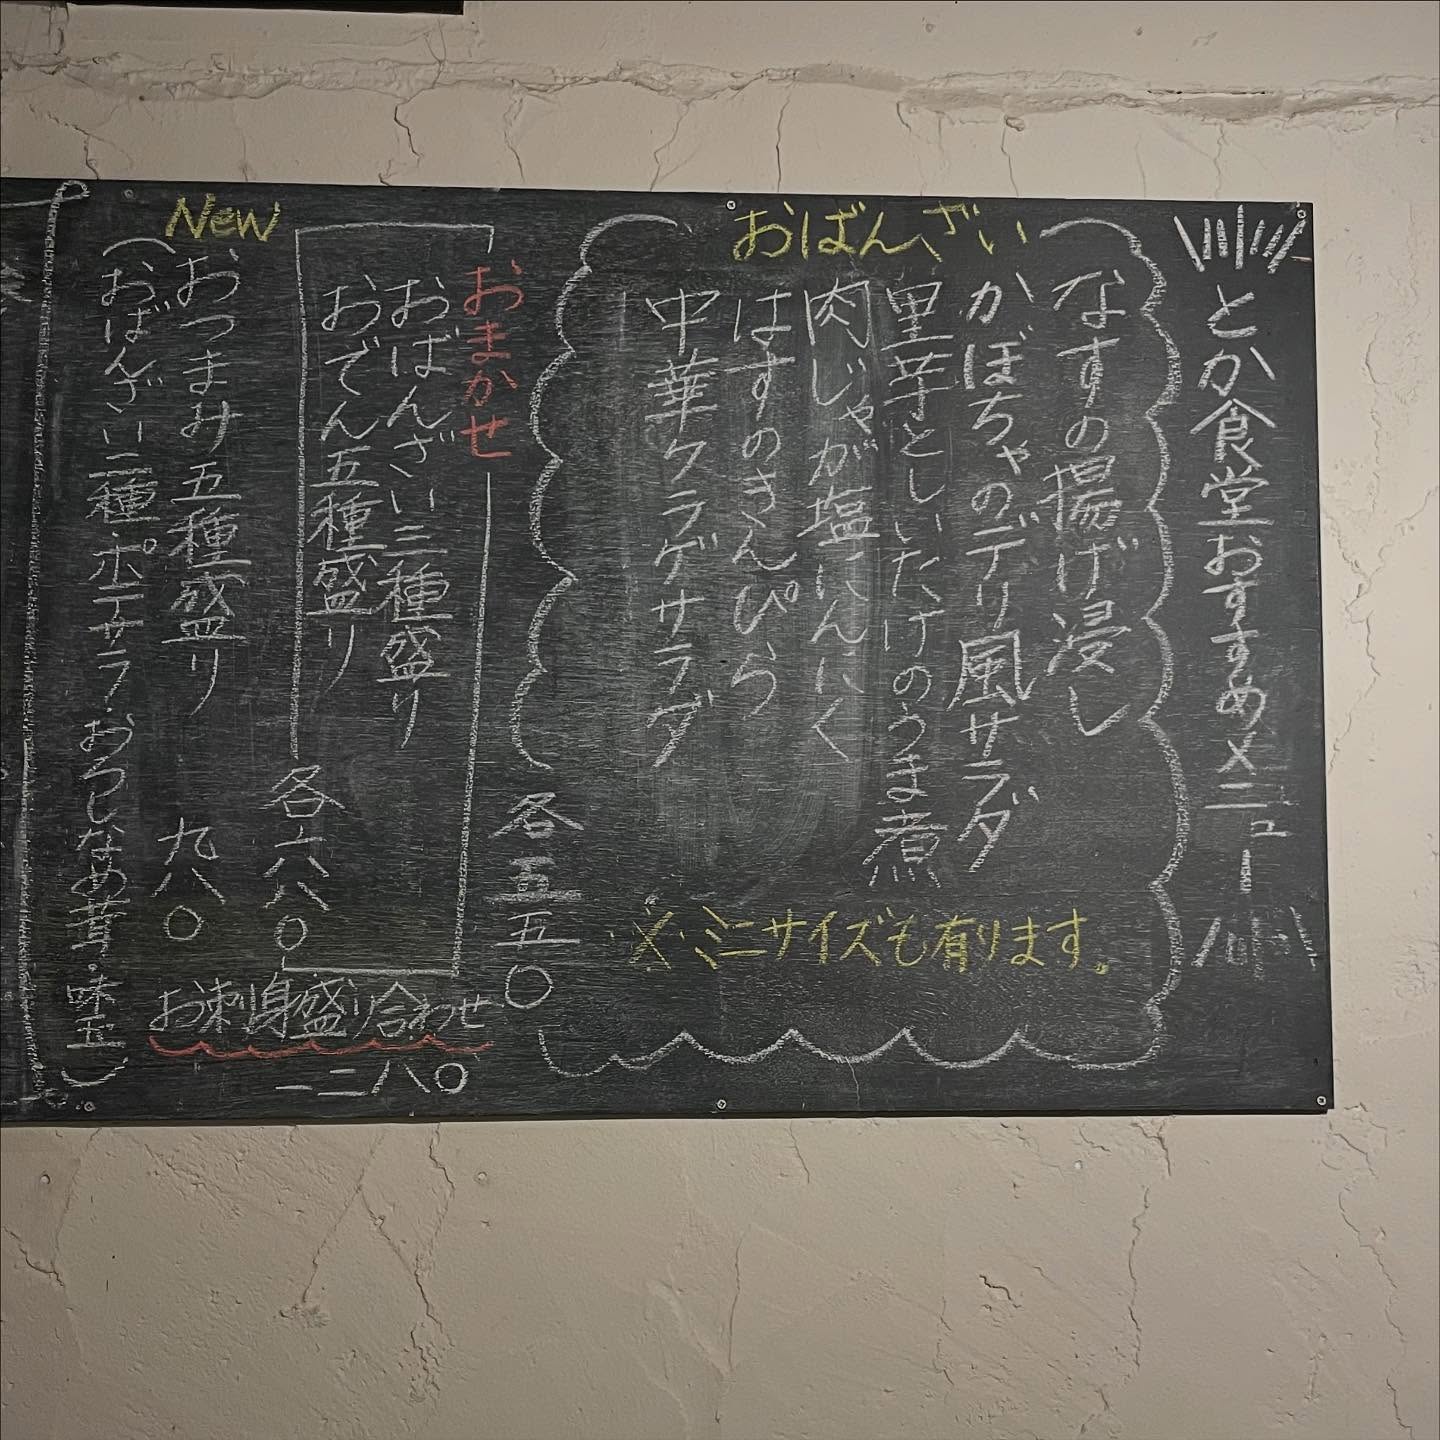 とか食堂おすすめメニュー
おばんざい
なすの揚げ浸し
かぼちゃのデリ風サラダ
里芋としいたけのうま煮
肉じゃが塩にんにく
はすのきんぴら
中華クラゲサラダ
※ミニサイズも有ります。
各五五〇
おまかせ
おばんざい三種盛り
おでん五種盛り
各六八〇
お刺身盛り合わせ
一二八〇
New
おつまみ五種盛り
九八〇
(おばんざい二種・ポテサラ・おろしなめ茸・味玉)